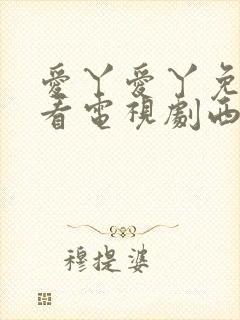 愛丫愛丫免
看電視劇西
穆提婆